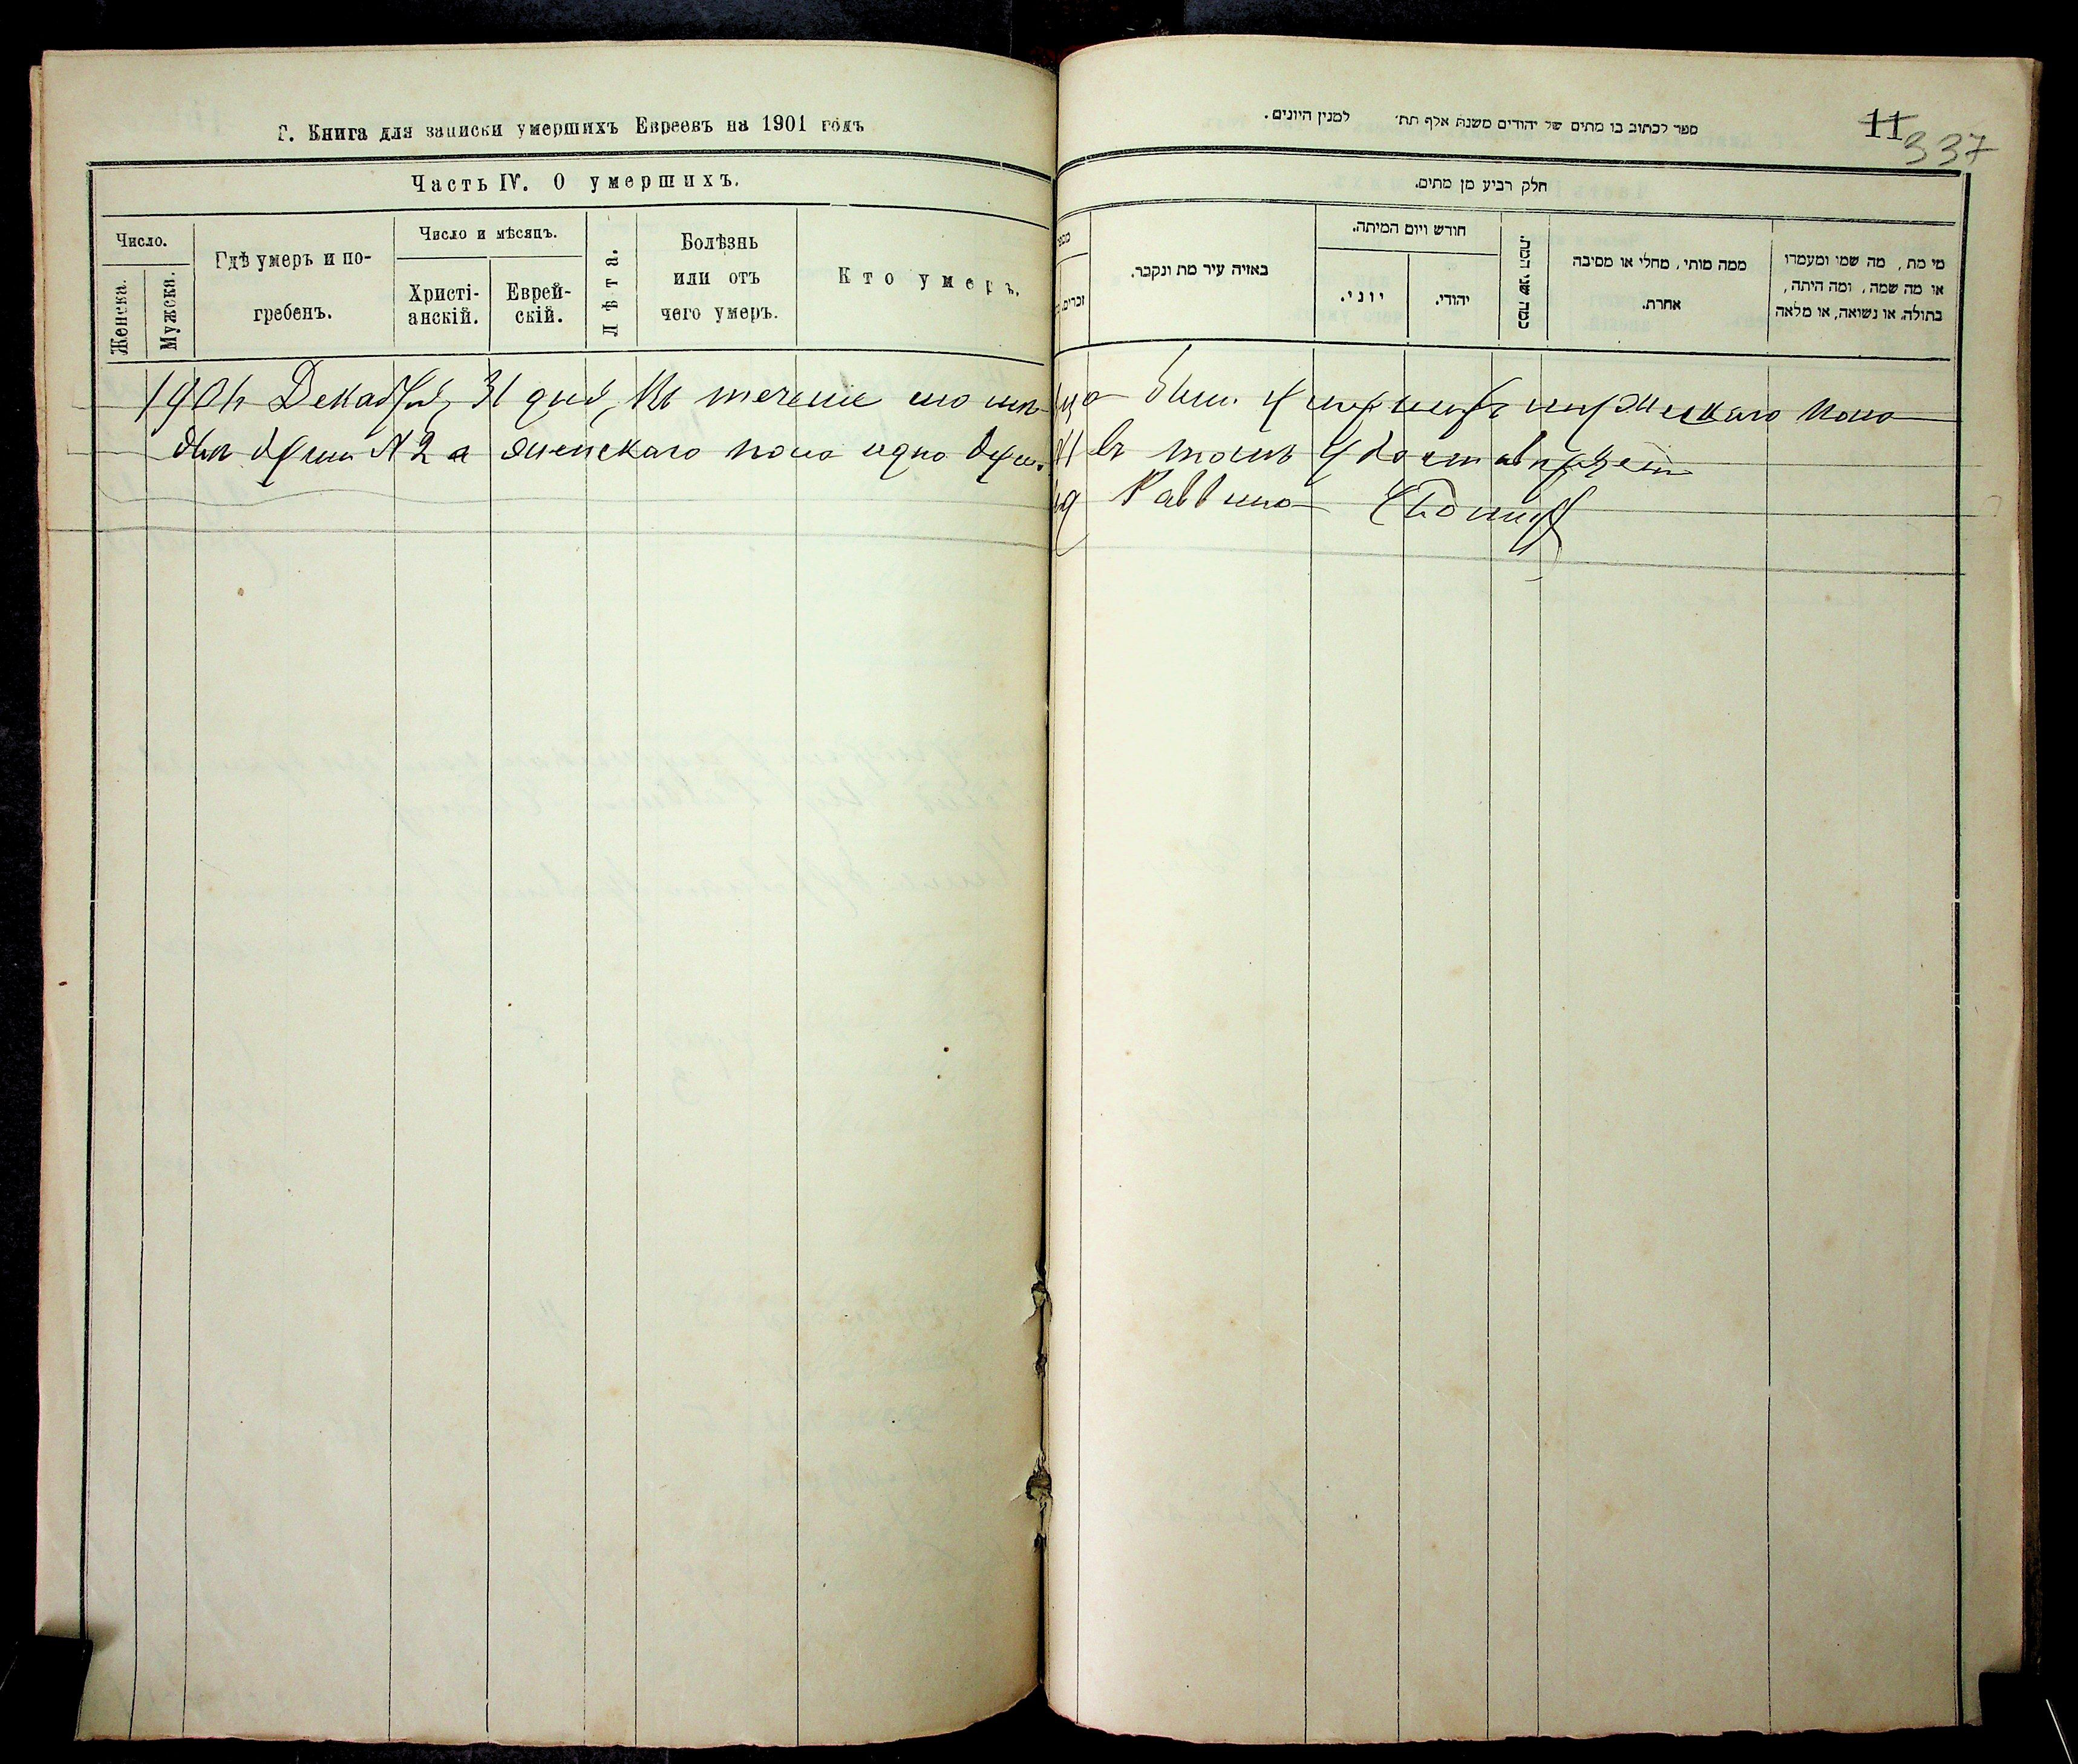 Г. Книга для записки умершихъ Евреевъ на 1901 годъ
Часть IV. О умершихъ.
Число.
Женска.
Мужска.
Гдѣ умеръ и по-
гребенъ.
Число и мѣсяцъ.
Христі-
анскій.
Еврей-
скій.
Лѣта.
Болѣзнь
или отъ
чего умеръ.
Кто умеръ.
ספר לכתוב בו מתים של יהודים משנת אלף תת׳ למנין היונים.
11
337
חלק רביע מן מתים.
זכרים.
באיזה עיר מת ונקבר.
חורש ויום המיתה.
יוני.
יהודי.
כמה שני המת.
ממה מותי, מחלי או מסיבה
אחרת.
מי מת, מה שמו ומעמדו
או מה שמה, ומה היתה,
בתולה או נשואה, או מלאה
Декабря, 31 дня, въ теченіе
мужскаго пола
двѣ души № 2 а женскаго пола одна душа
въ томъ удостовѣряемъ
Раввинъ